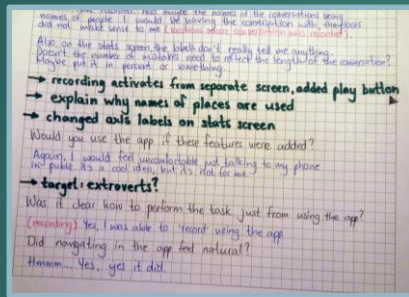 names of people I would be having the conversation with, the floors
did not make sense to me (locations where conversation was recorded).
Also, on the stats screen, the labels don't really tell me anything.
Doesn't the number of mistakes need to reflect the length of the conversation?
Maybe put it in percent or something.
→ recording activates from separate screen, added play button
→ explain why names of places are used
→ changed axis labels on stats screen
Would you use the app if these features were added?
Again, I would feel uncomfortable just talking to my phone
in public. It's a cool idea, but it's not for me.
→ target: extroverts?
Was it clear how to perform the task just from using the app?
(recording) Yes, I was able to 'record' using the app
Did navigating in the app feel natural?
Hmmm... Yes, yes it did.